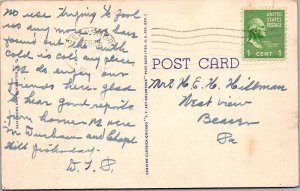 no use trying to fool
us any more. We have
found out that with
cold is cold any place.
We do enjoy our
friends here. glad
to hear good reports
from home. We were
in Durham and Chapel
Hill Friday.
D. S. P.
POST CARD
UNITED STATES
POSTAGE
1 CENT 1
Mrs H. E. H. Hillman
West view
Beaver
Pa